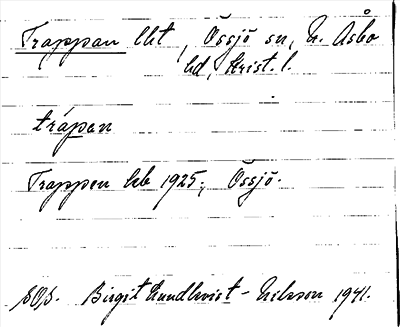 Trappan lht, Össjö sn, N. Åsbo
hd, Krist. l.
trápan
Trappen hb 1925, Össjö.
SOS. Birgit Lundkvist-Nilsson 1941.